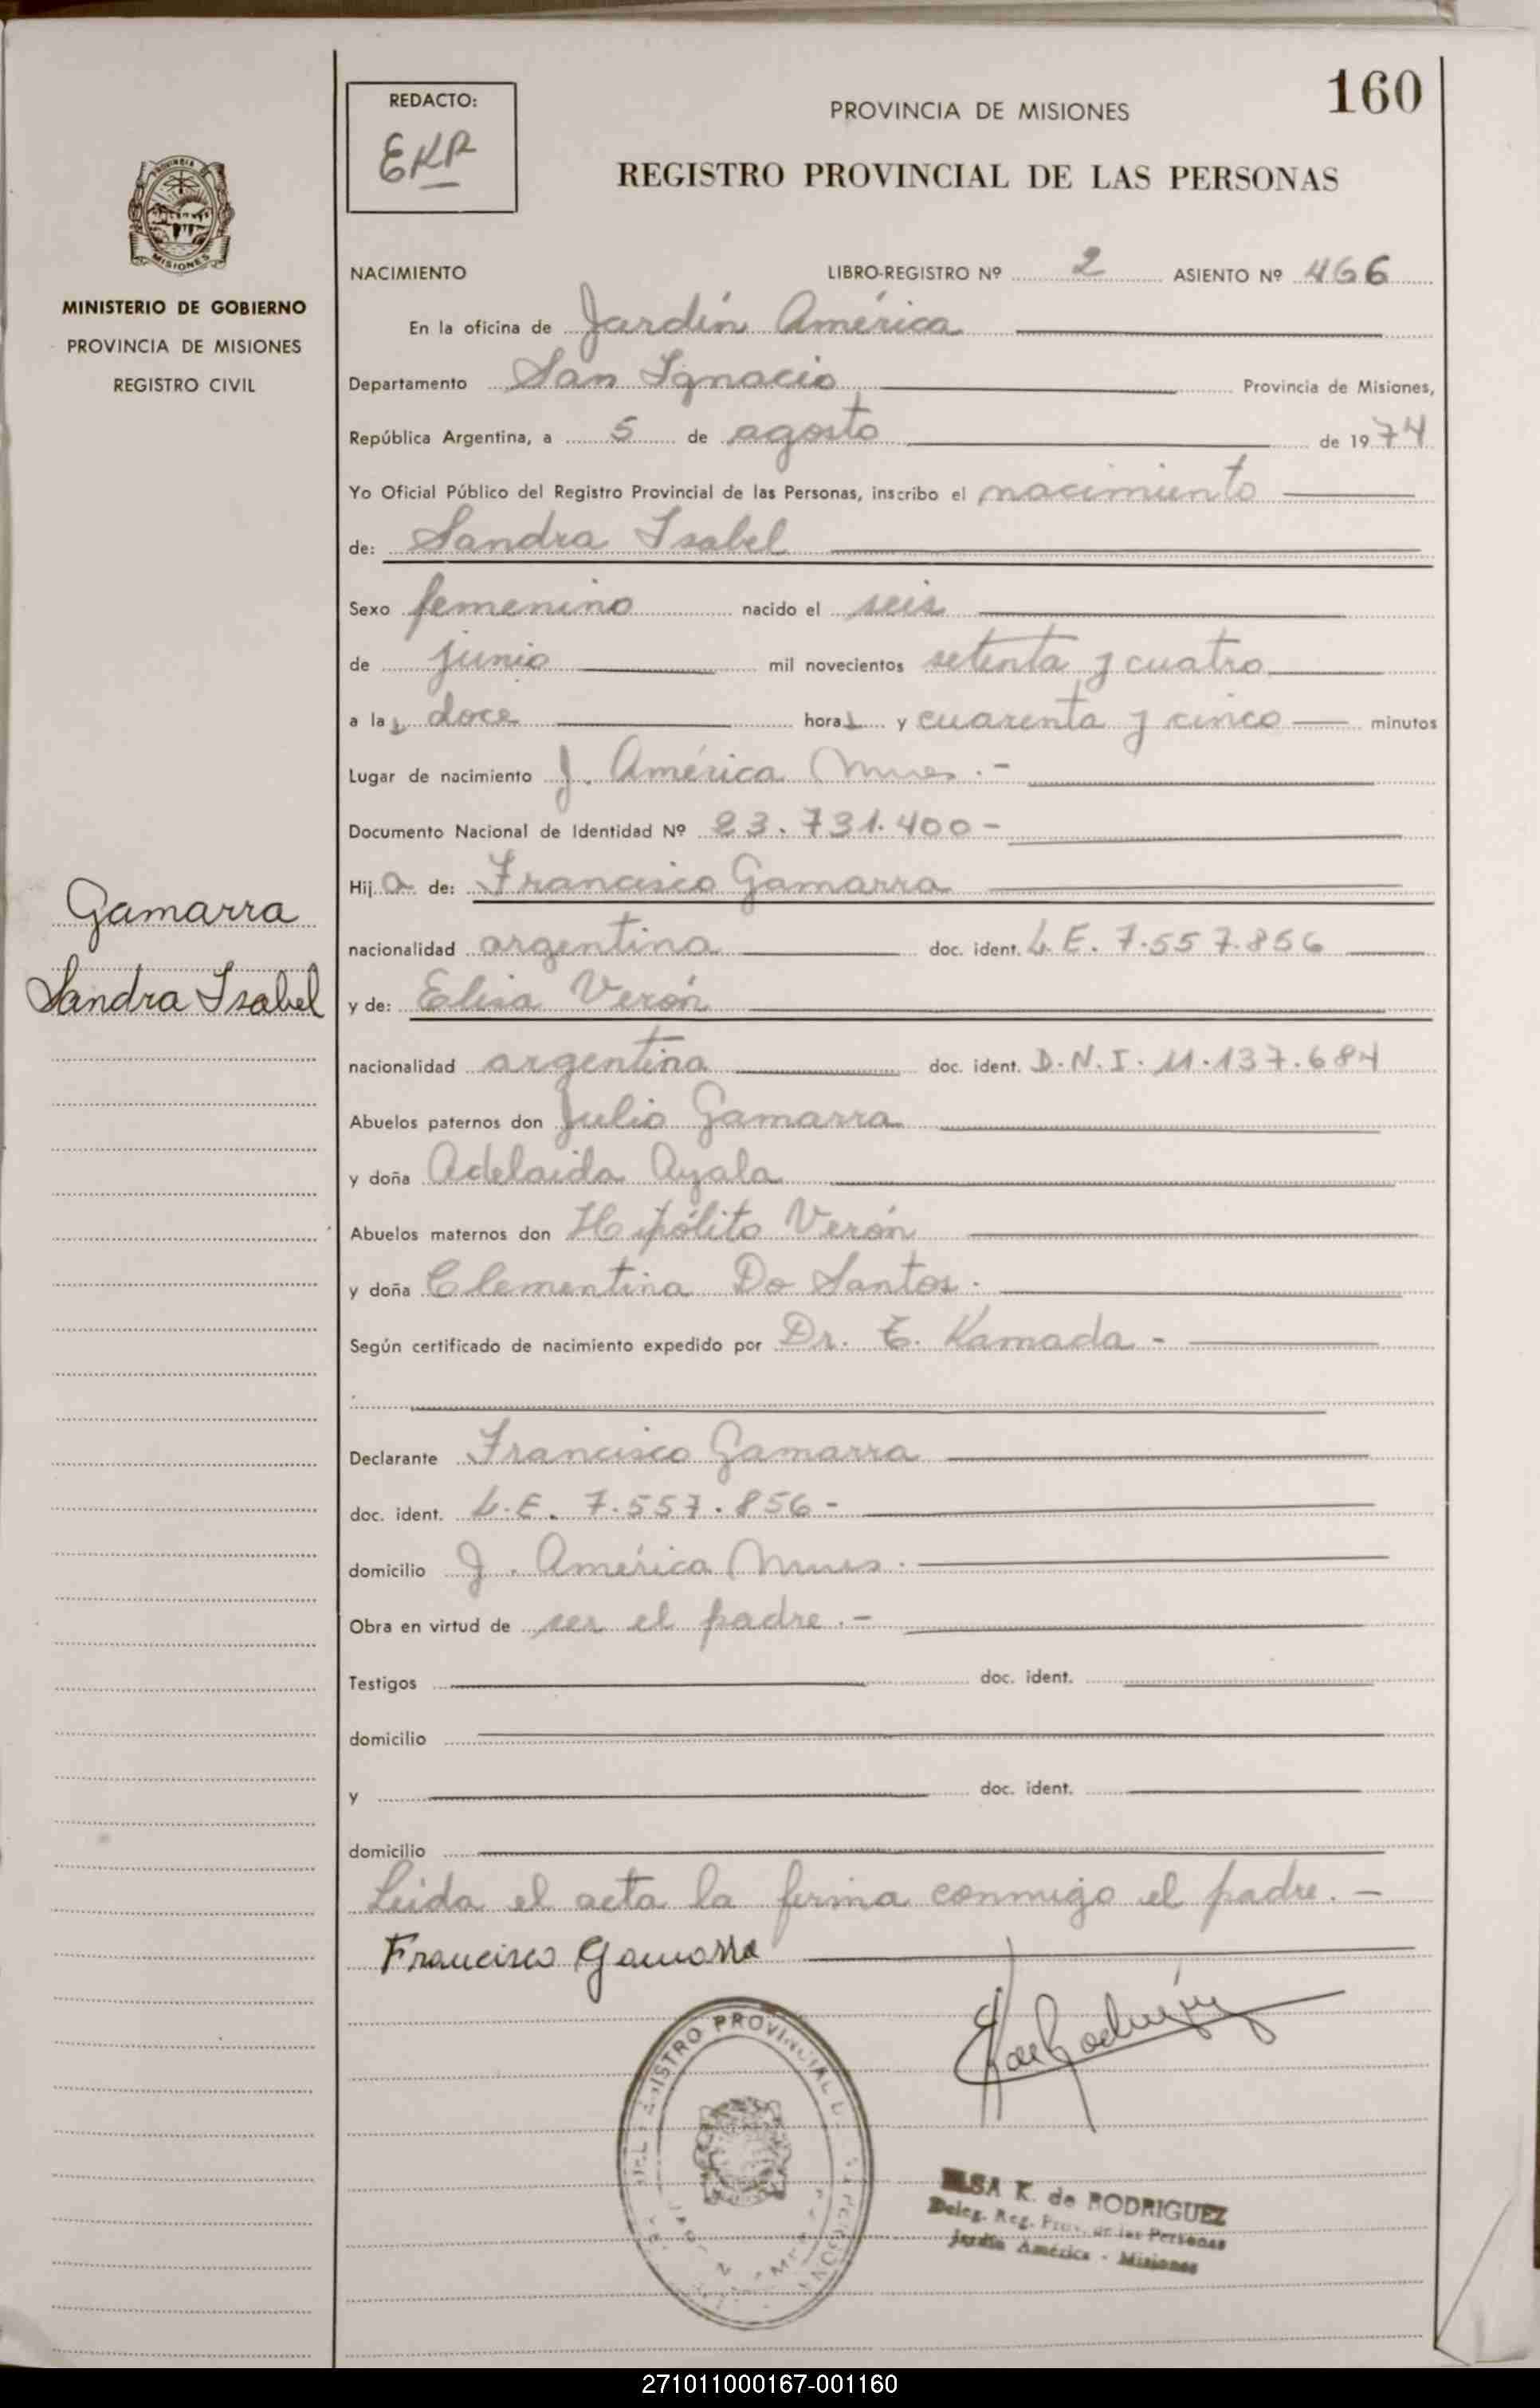 160
REDACTO:
EKR
PROVINCIA DE MISIONES
REGISTRO PROVINCIAL DE LAS PERSONAS
PROVINCIA
MISIONES
MINISTERIO DE GOBIERNO
PROVINCIA DE MISIONES
REGISTRO CIVIL
NACIMIENTO LIBRO-REGISTRO Nº 2 ASIENTO Nº 466
En la oficina de Jardín América
Departamento San Ignacio Provincia de Misiones,
República Argentina, a 5 de agosto de 1974
Yo Oficial Público del Registro Provincial de las Personas, inscribo el nacimiento
de: Sandra Isabel
Sexo femenino nacido el seis
de junio mil novecientos setenta y cuatro
a las doce horas y cuarenta y cinco minutos
Lugar de nacimiento J. América Mnes. -
Documento Nacional de Identidad Nº 23.731.400-
Hija de: Francisco Gamarra
Gamarra
Sandra Isabel
nacionalidad argentina doc. ident. L.E. 7.557.856
y de: Elisa Verón
nacionalidad argentina doc. ident. D.N.I. 11.137.684
Abuelos paternos don Julio Gamarra
y doña Adelaida Ayala
Abuelos maternos don Hipólito Verón
y doña Clementina Do Santos.
Según certificado de nacimiento expedido por Dr. T. Kamada -
Declarante Francisco Gamarra
doc. ident. L.E. 7.557.856-
domicilio J. América Mnes.
Obra en virtud de ser el padre. -
Testigos doc. ident.
domicilio
y doc. ident.
domicilio
Leida el acta la firma conmigo el padre. -
Francisco Gamarra
ELSA K. de RODRIGUEZ
Deleg. Reg. Prov. de las Personas
Jardín América - Misiones
271011000167-001160